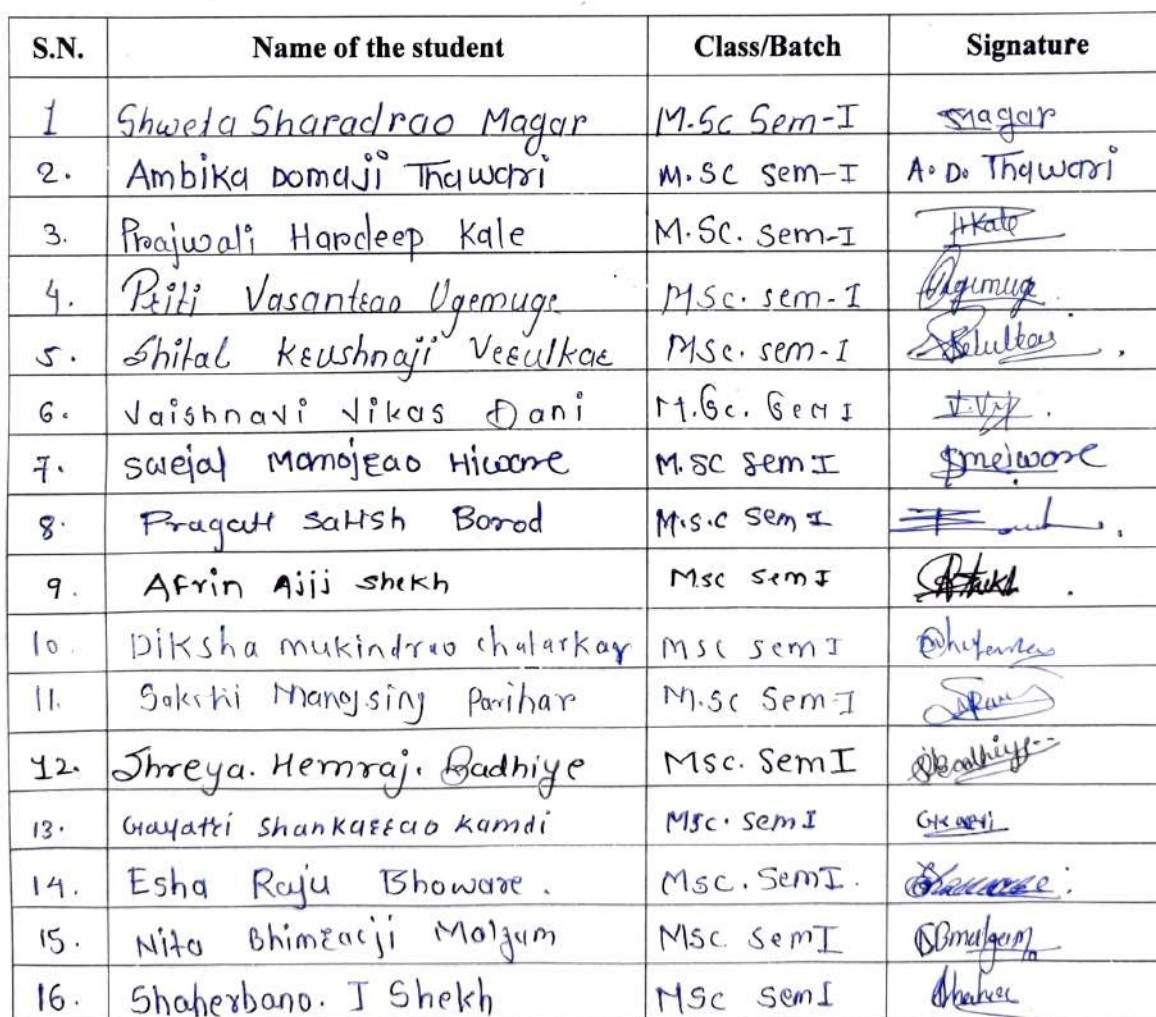 S.N. Name of the student Class/Batch Signature
1 Shweta Sharadrao Magar M.Sc Sem-I Magar
2. Ambika Domaji Thawari M.SC sem-I A. D. Thawari
3. Prajwali Hardeep Kale M.SC. Sem-I HKale
4. Priti Vasantrao Ugemuge MSc. sem-I Ugemuge
5. Shital Krushnaji Verulkar MSc. sem-I
6. Vaishnavi Vikas Dani M.Sc. Sem I
7. Swejal Manojrao Hiware M.SC Sem I
8. Pragati Satish Borod M.S.C Sem I
9. Afrin Ajij shekh Msc sem I
10. Diksha mukindrao chatarkar Msc sem I
11. Sakshi Manojsing Parihar M.Sc Sem-I
12. Shreya. Hemraj. Badhiye Msc. Sem I Badhiye
13. Gayatri Shankarrao Kamdi Msc. Sem I
14. Esha Raju Bhoware. Msc. Sem I.
15. Nita Bhimraoji Malgam MSc. Sem I NBmalgam
16. Shaherbano. I Shekh MSc Sem I